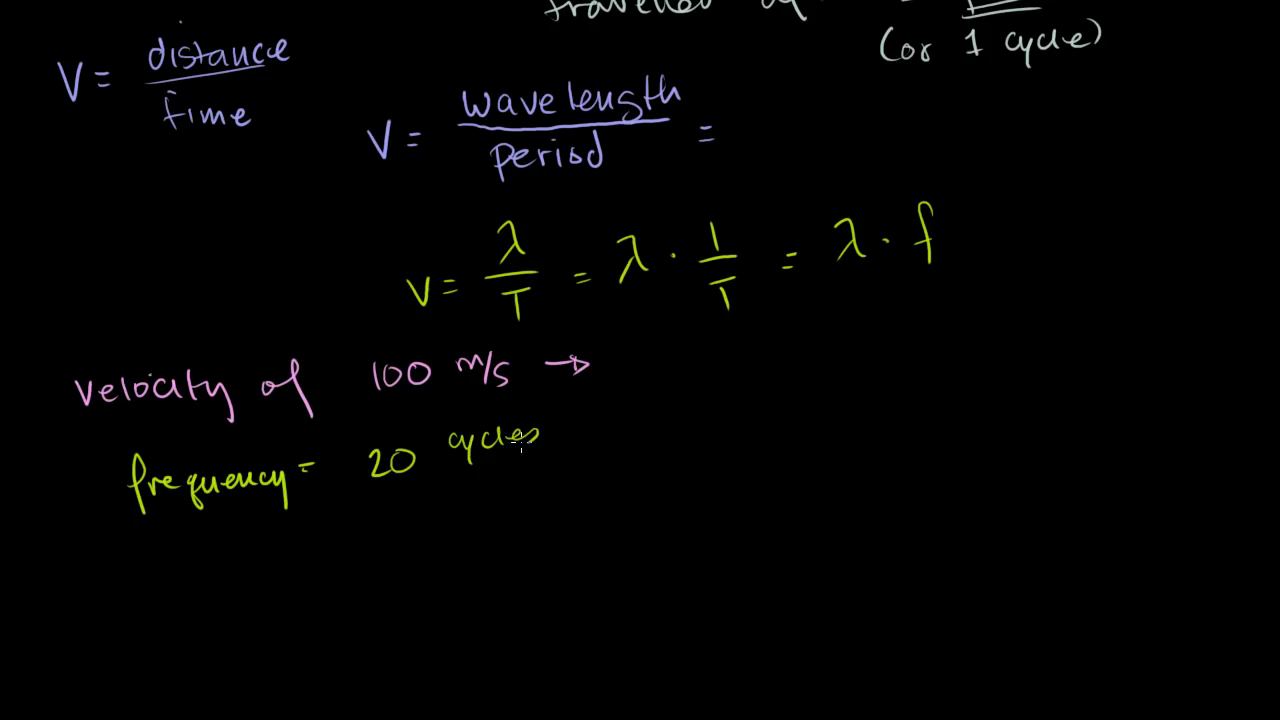 (or 1 cycle)
V = distance / time
V = wavelength / period =
v = λ / T = λ · 1 / T = λ · f
velocity of 100 m/s →
frequency = 20 cycles